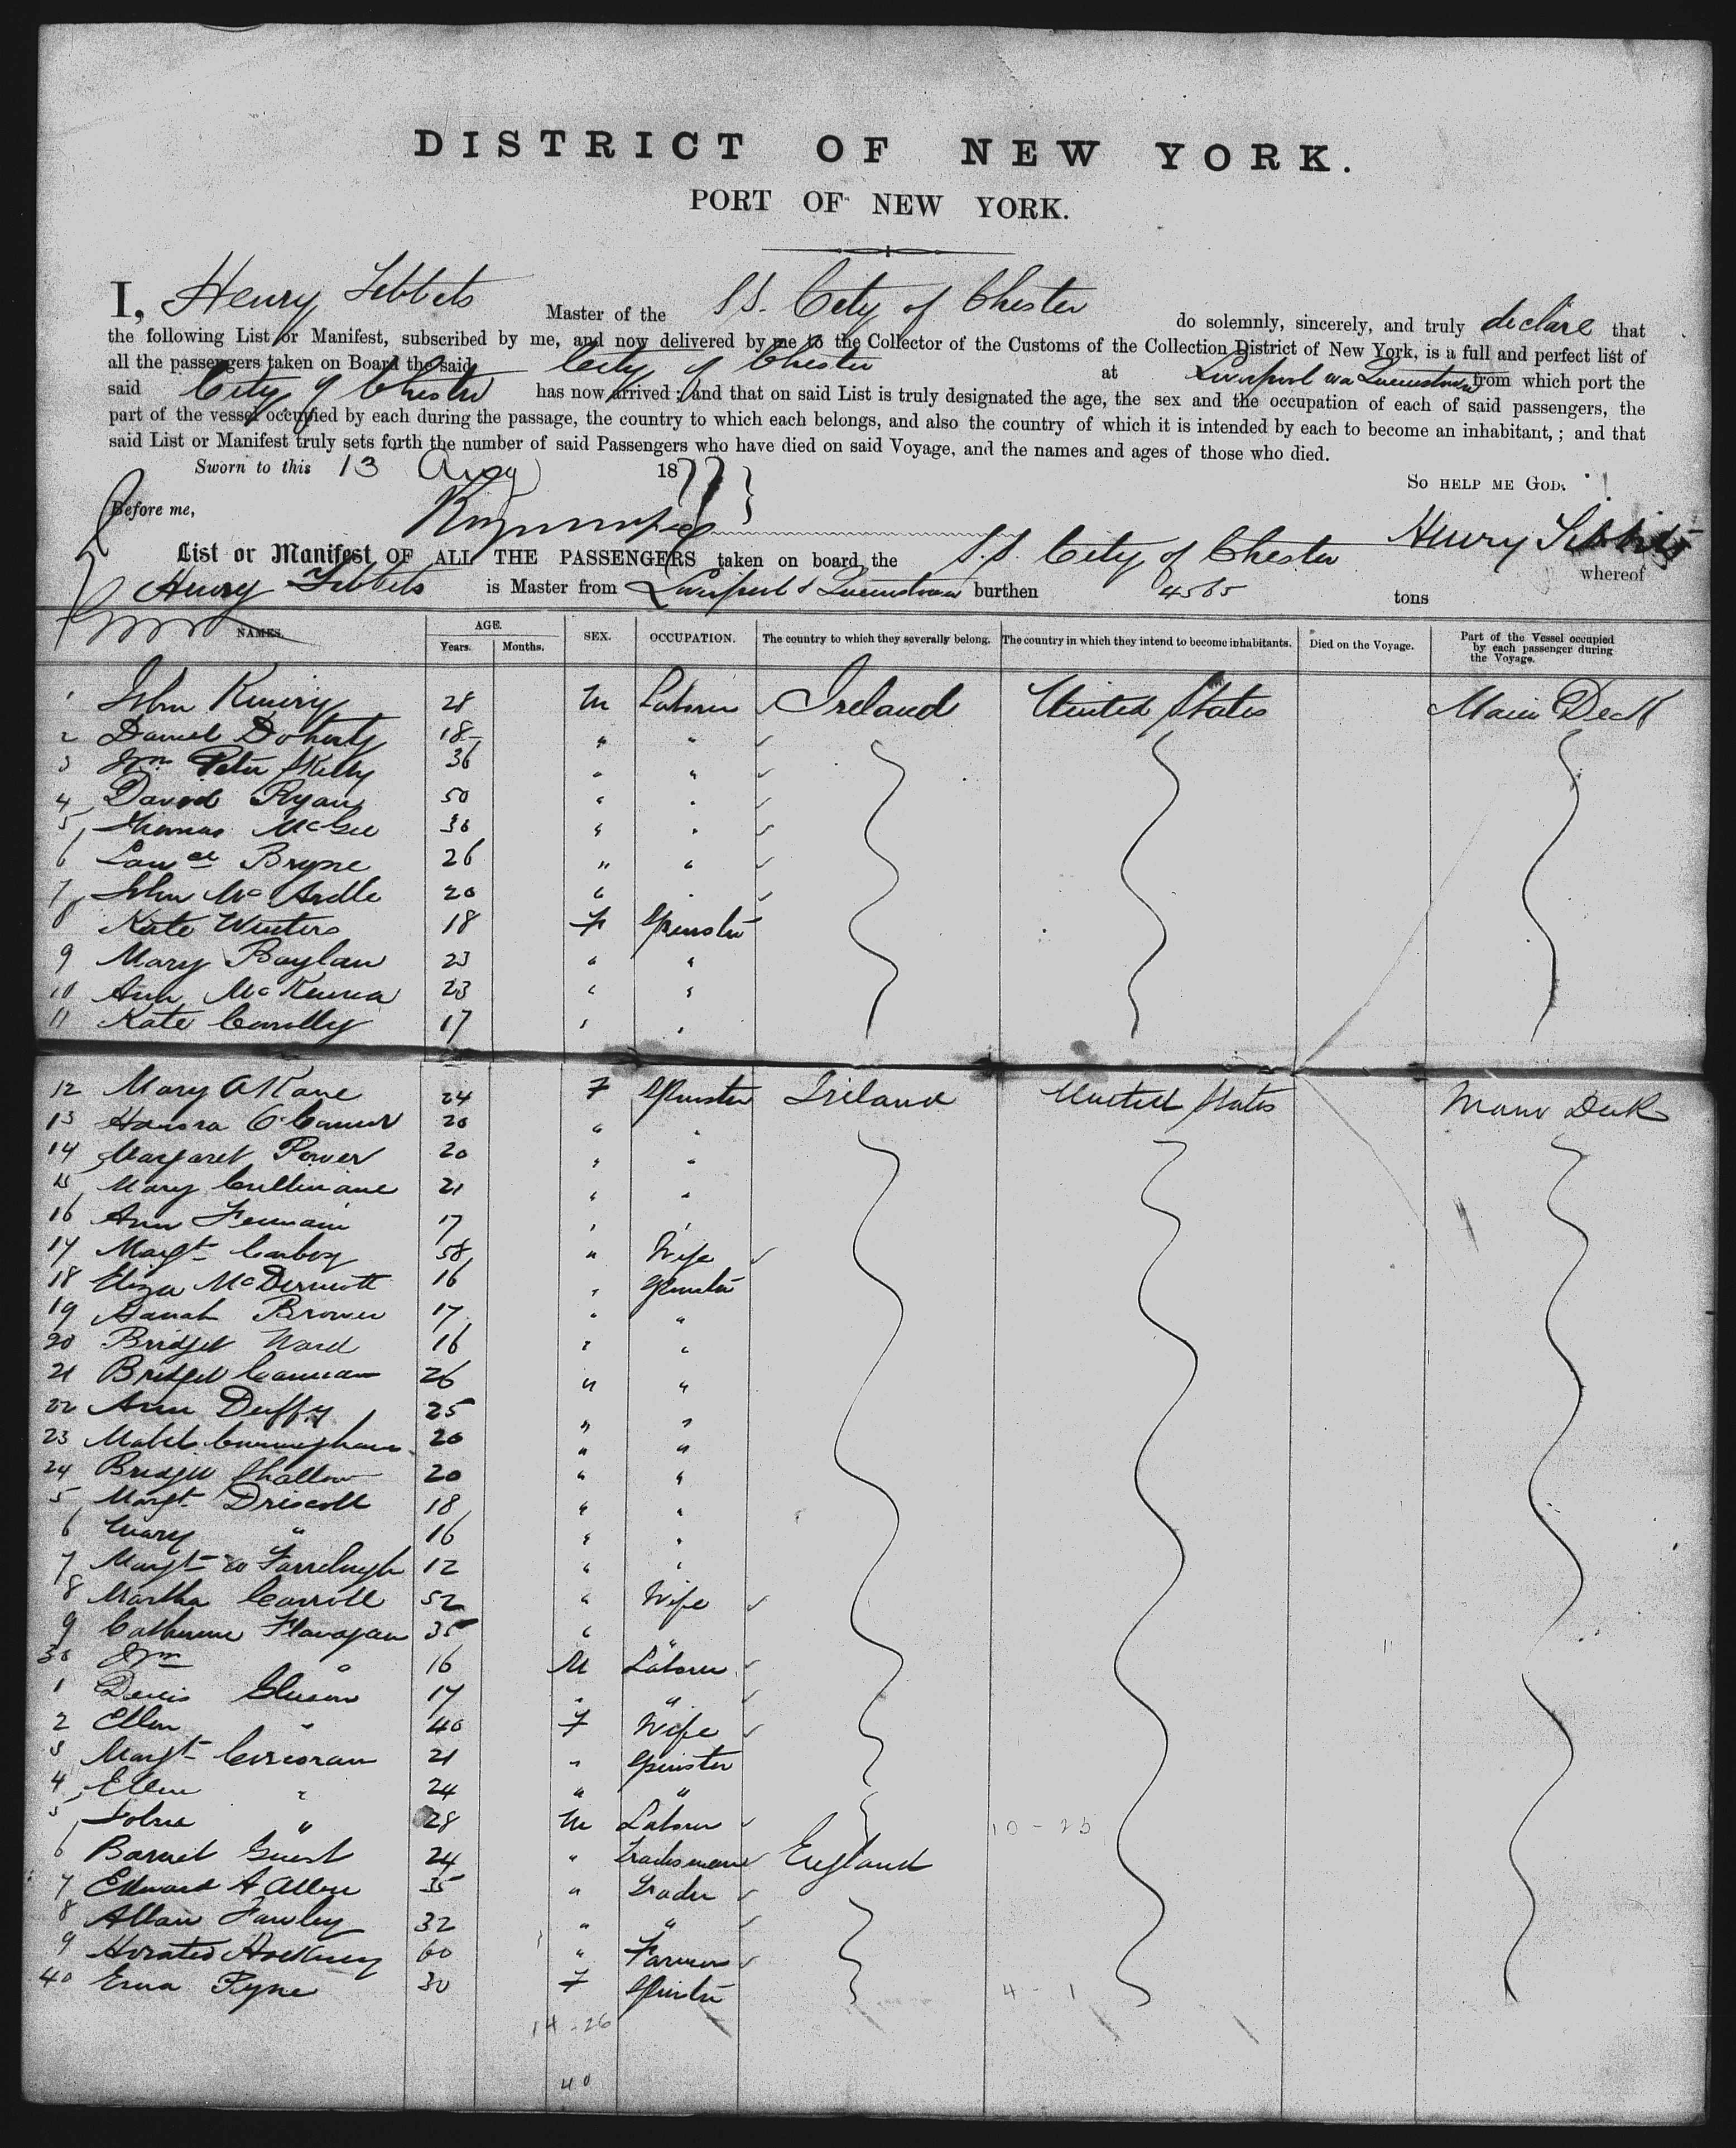 DISTRICT OF NEW YORK.
PORT OF NEW YORK.
I, Henry Tibbits Master of the S.S. City of Chester do solemnly, sincerely, and truly declare that
the following List or Manifest, subscribed by me, and now delivered by me to the Collector of the Customs of the Collection District of New York, is a full and perfect list of
all the passengers taken on Board the said City of Chester at Liverpool via Queenstown from which port the
said City of Chester has now arrived: and that on said List is truly designated the age, the sex and the occupation of each of said passengers, the
part of the vessel occupied by each during the passage, the country to which each belongs, and also the country of which it is intended by each to become an inhabitant, ; and that
said List or Manifest truly sets forth the number of said Passengers who have died on said Voyage, and the names and ages of those who died.
Sworn to this 13 Aug 1877 So help me God.
Before me, Henry Tibbits
List or Manifest OF ALL THE PASSENGERS taken on board the S.S. City of Chester whereof
Henry Tibbits is Master from Liverpool & Queenstown burthen 4565 tons
NAMES. AGE. Years. Months. SEX. OCCUPATION. The country to which they severally belong. The country in which they intend to become inhabitants. Died on the Voyage. Part of the Vessel occupied by each passenger during the Voyage.
1 John 28 M Laborer Ireland United States Main Deck
2 Daniel Doherty 18 " "
3 Jno Peter Skelly 36 " "
4 David Ryan 50 " "
5 Thomas McGee 30 " "
6 Lawce Bryne 26 " "
7 John McArdle 20 " "
8 Kate Winters 18 F Spinster
9 Mary Boylan 23 " "
10 Ann McKenna 23 " "
11 Kate Conolly 17 " "
12 Mary A Kane 24 F Spinster Ireland United States Main Deck
13 Honora O'Connor 20 " "
14 Margaret Power 20 " "
15 Mary Cullinane 21 " "
16 Ann 17 " "
17 Margt Conboy 58 " Wife
18 Eliza McDermott 16 " Spinster
19 Sarah Brown 17 " "
20 Bridget Ward 16 " "
21 Bridget Cannan 26 " "
22 Ann Duffy 25 " "
23 Mabel Cunningham 20 " "
24 Bridget Shallow 20 " "
5 Margt Driscoll 18 " "
6 Mary " 16 " "
7 Margt 12 " "
8 Martha Carroll 52 " Wife
9 Catherine Flanagan 35 " "
30 Jno " 16 M Laborer
1 Denis Gleeson 17 " "
2 Ellen " 40 F Wife
3 Margt Corcoran 21 " Spinster
4 Ellen " 24 " "
5 John " 28 M Laborer 10 - 25
6 Barnet Guest 24 " Tradesman England
7 Edward A Allen 35 " Trader
8 Allan Fawley 32 " "
9 Horatio 60 " Farmer
40 Erna Ryne 30 F Spinster 4 - 1
14 - 26
40